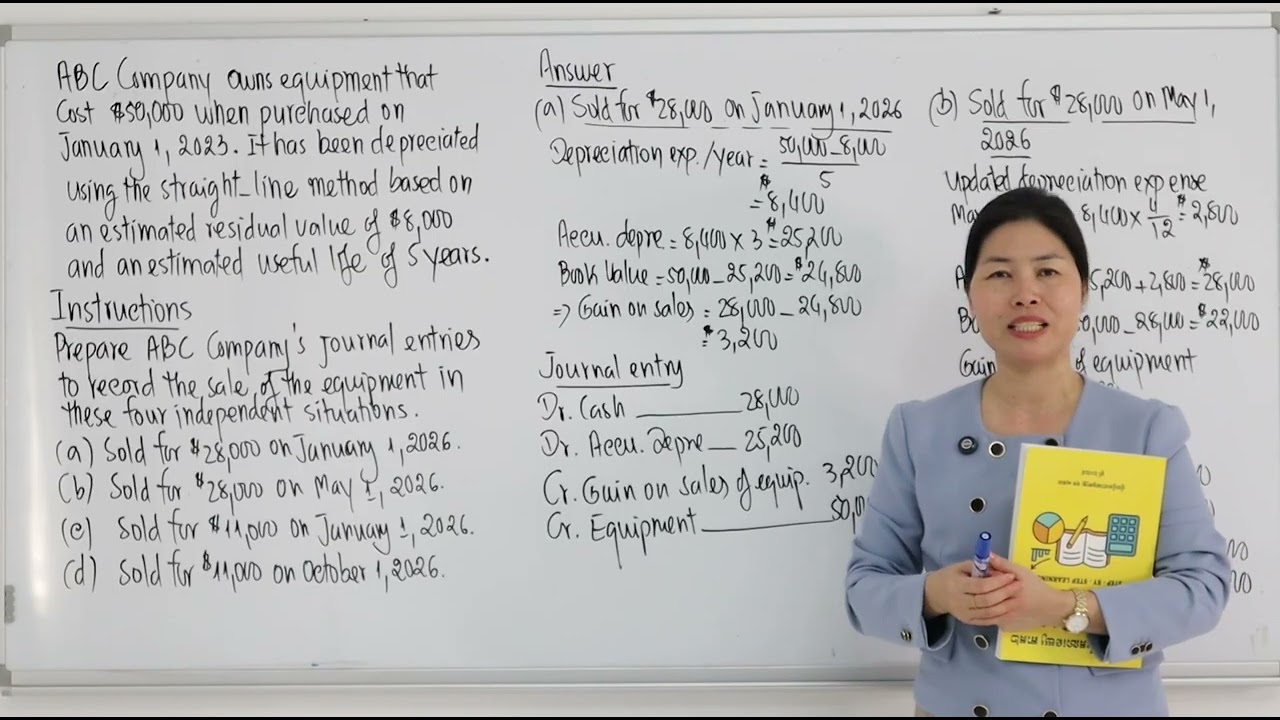 ABC Company owns equipment that
Cost $50,000 when purchased on
January 1, 2023. It has been depreciated
using the straight-line method based on
an estimated residual value of $8,000
and an estimated useful life of 5 years.
Instructions
Prepare ABC Company's journal entries
to record the sale of the equipment in
these four independent situations.
(a) Sold for $28,000 on January 1, 2026.
(b) Sold for $28,000 on May 1, 2026.
(c) Sold for $11,000 on January 1, 2026.
(d) Sold for $11,000 on October 1, 2026.
Answer
(a) Sold for $28,000 on January 1, 2026
Depreciation exp./year = 50,000 - 8,000
5
= $8,400
Accu. depre. = 8,400 x 3 = $25,200
Book Value = 50,000 - 25,200 = $24,800
=> Gain on sales = 28,000 - 24,800
= $3,200
Journal entry
Dr. Cash 28,000
Dr. Accu. depre 25,200
Cr. Gain on sales of equip. 3,200
Cr. Equipment 50,0
(b) Sold for $28,000 on May 1,
2026
Updated depreciation expense
Ma 8,400 x 4/12 = $2,800
5,200 + 2,800 = $28,000
0,000 - 28,000 = $22,000
Gain of equipment
STEP - BY - STEP LEARNING